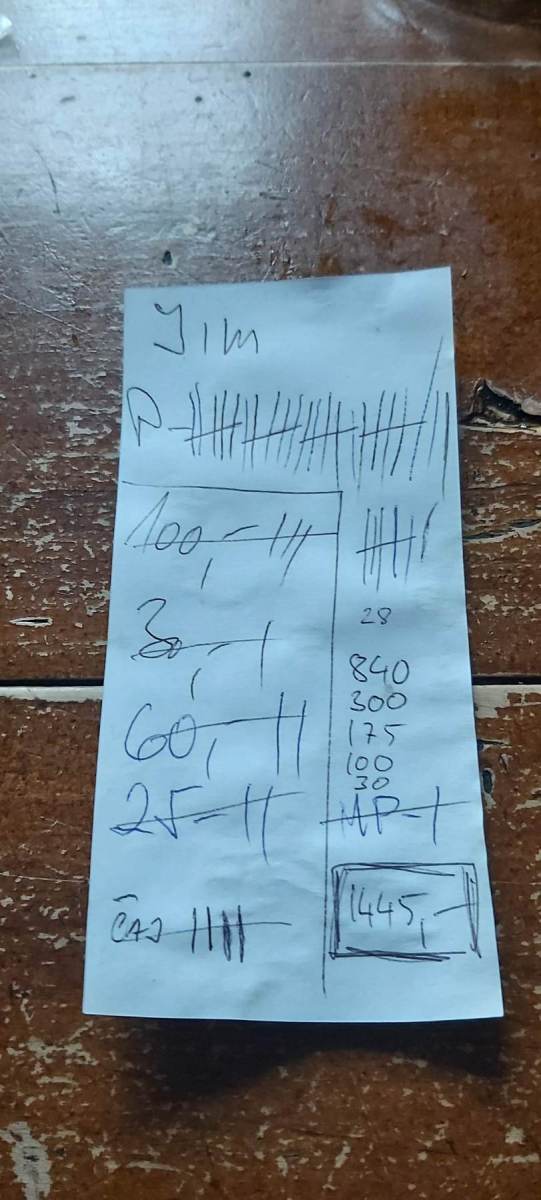 Jim
P-
100,-
30,-
60,-
25-
ČAJ
28
840
300
175
100
30
MP-
1445,-